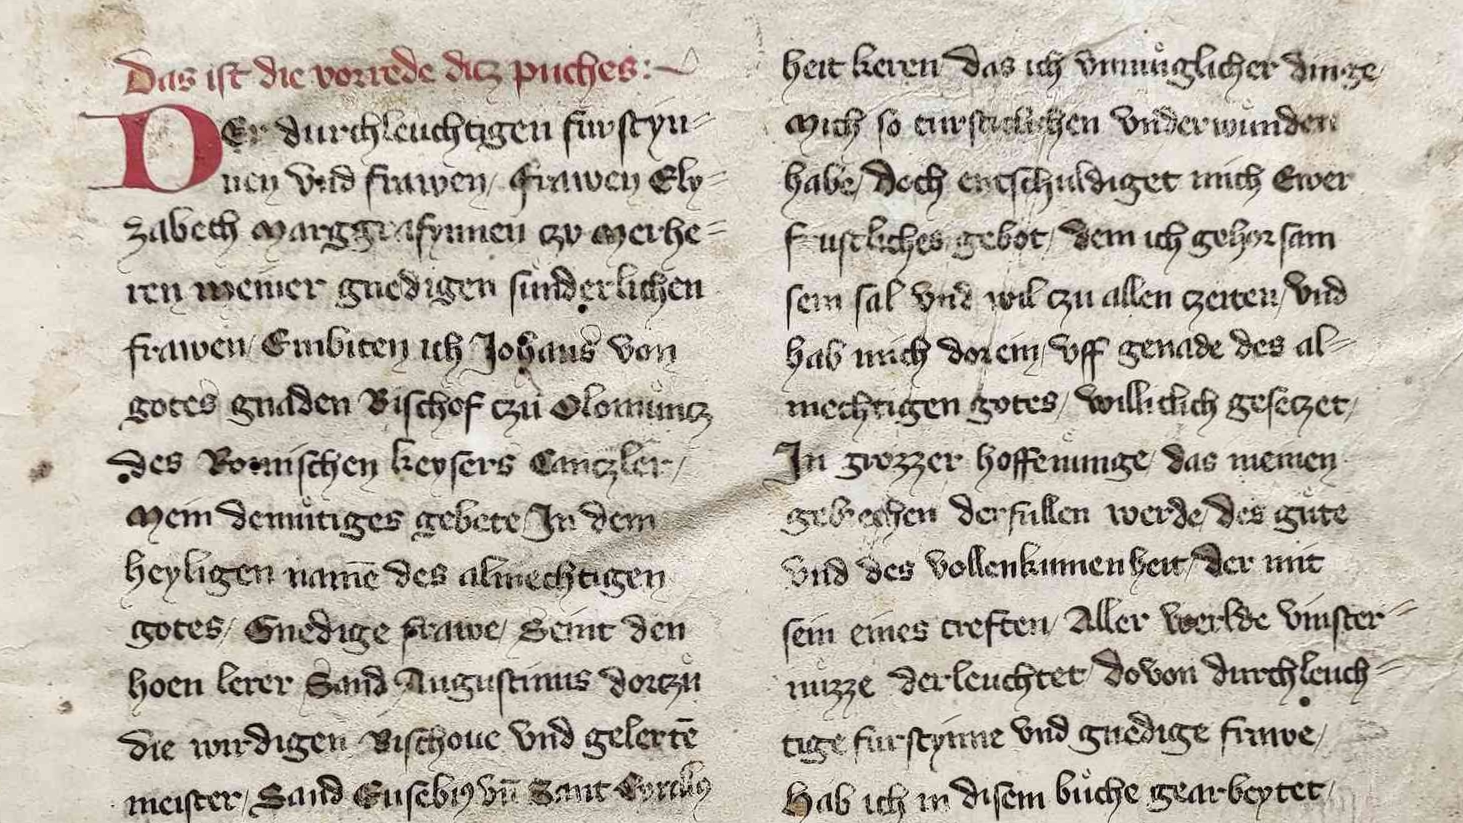 Das ist die vorrede ditz puches:
DEr durchleuchtigen fürstyn=
nen vnd frawen/ frawen Ely=
zabeth Marggrafynnen czv Merhe=
ren meiner gnedigen sunderlichen
frawen/ Embiten ich Johans von
gotes gnaden Bischof czu Olomuncz
des Romischen keysers Canczler/
Mein demutiges gebete/ In dem
heyligen namē des almechtigen
gotes/ Gnedige frawe/ Seint den
hoen lerer Sand Augustinus dorczu
die wirdigen Bischoue vnd gelertē
meister/ Sand Eusebiꝰ vn̄ Sant Cyrillꝰ
heit keren das ich vnmuglicher dinge/
Mich so turstichlichen vnderwunden
habe/ doch entschuldiget mich Ewer
furstliches gebot/ dem ich gehorsam
sein sal vnd wil czu allen czeiten/ vnd
hab mich dorein/ vff genade des al=
mechtigen gotes/ williclich geseczet/
In grozzer hoffenunge/ das meinen
gebrechen derfullen werde/ des gute
vnd des vollenkumenheit/ der mit
sein eines creften/ Aller werlde vinster=
nuzze derleuchtet/ dovon durchleuch=
tige furstynne vnd gnedige frawe/
Hab ich in disem buche gearbeytet/